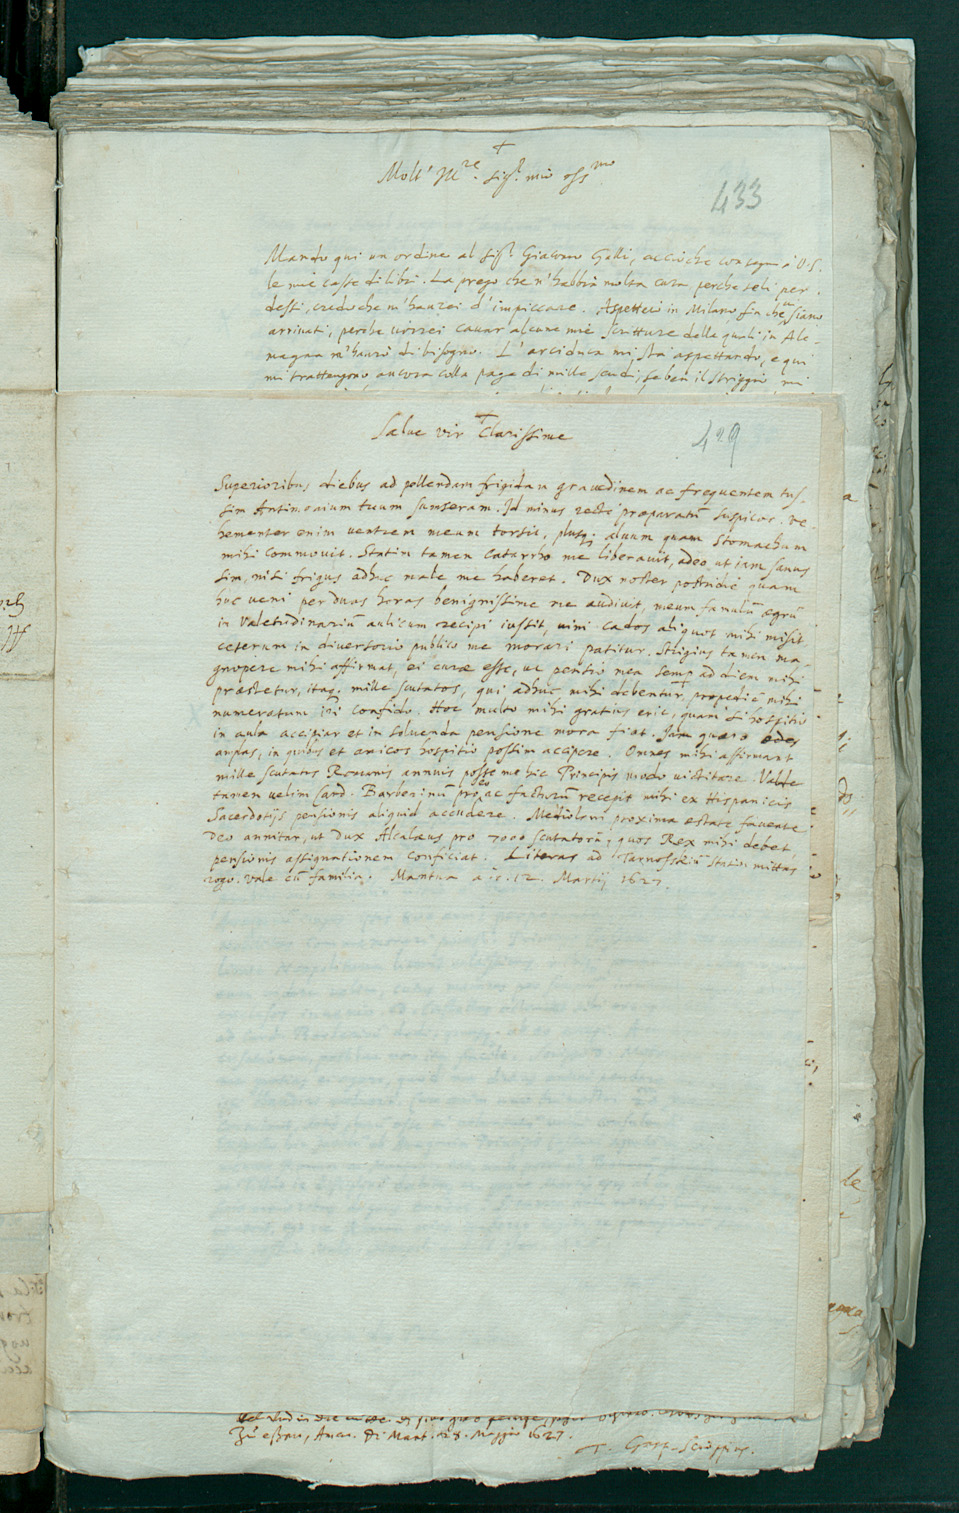 +
Molt' Ill.re Sig.r mio oss.mo
433
Mando qui un ordine al Sig.r Giacomo Galli, acciò che consegni à V.S.
le mie casse di libri. La prego che n'habbia molta cura, perche se li per-
dessi, credo che m'haurei d'impiccare. Aspetterò in Milano sin che siano
arrivati, perche vorrei cavar alcune mie scritture delle quali in Ale-
magna n'haurò di bisogno. L'arciduca mi sta aspettando, e qui
mi trattengono ancora colla paga di mille scudi, se ben il Striggio mi
+
Salve vir Clarissime
429
Superioribus diebus ad pellendam frigidam gravedinem ac frequentem tus-
sim Antimonium tuum sumseram. Id minus recte præparatū suspicor. Ve-
hementer enim ventrem meum torsit, plusq; alvum quam stomachum
mihi commovit. Statim tamen catarrho me liberavit, adeo ut iam sanus
sim, nisi frigus adhuc male me haberet. Dux noster postridie quam
huc veni per duas horas benignissime me audivit, meum famulū ægrū
in Valetudinariū aulicum recipi iussit, vini cados aliquot mihi misit,
ceterum in diversorio publico me morari patitur. Strigius tamen ma-
gnopere mihi affirmat, ei curæ esse, ut pensio mea semp ad diem mihi
præstetur, itaq; mille scutatos, qui adhuc mihi debentur, propediē mihi
numeratum iri confido. Hoc multo mihi gratius erit, quam si hospitio
in aula accipiar et in solvenda pensione mora fiat. Jam quæro ædes
amplas, in quibus et amicos hospitio possim accipere. Omnes mihi affirmant
mille scutatis Romanis annuis posse me hic Principis modo victitare. Valde
tamen velim Card. Barberinū pro eo ac facturū recepit mihi ex Hispanicis
Sacerdotijs pensionis aliquid accudere. Mediolani proxima estate favente
Deo annitar, ut Dux Alcalæus pro 7000 scutatorū, quos Rex mihi debet,
pensionis assignationem conficiat. Literas ad Tarnofskiū statim mittas
rogo. Vale cū familia. Mantua a. d. 12. Martij 1627.
di Mant. a 8. Maggio 1627.
Gasp. Scioppius.